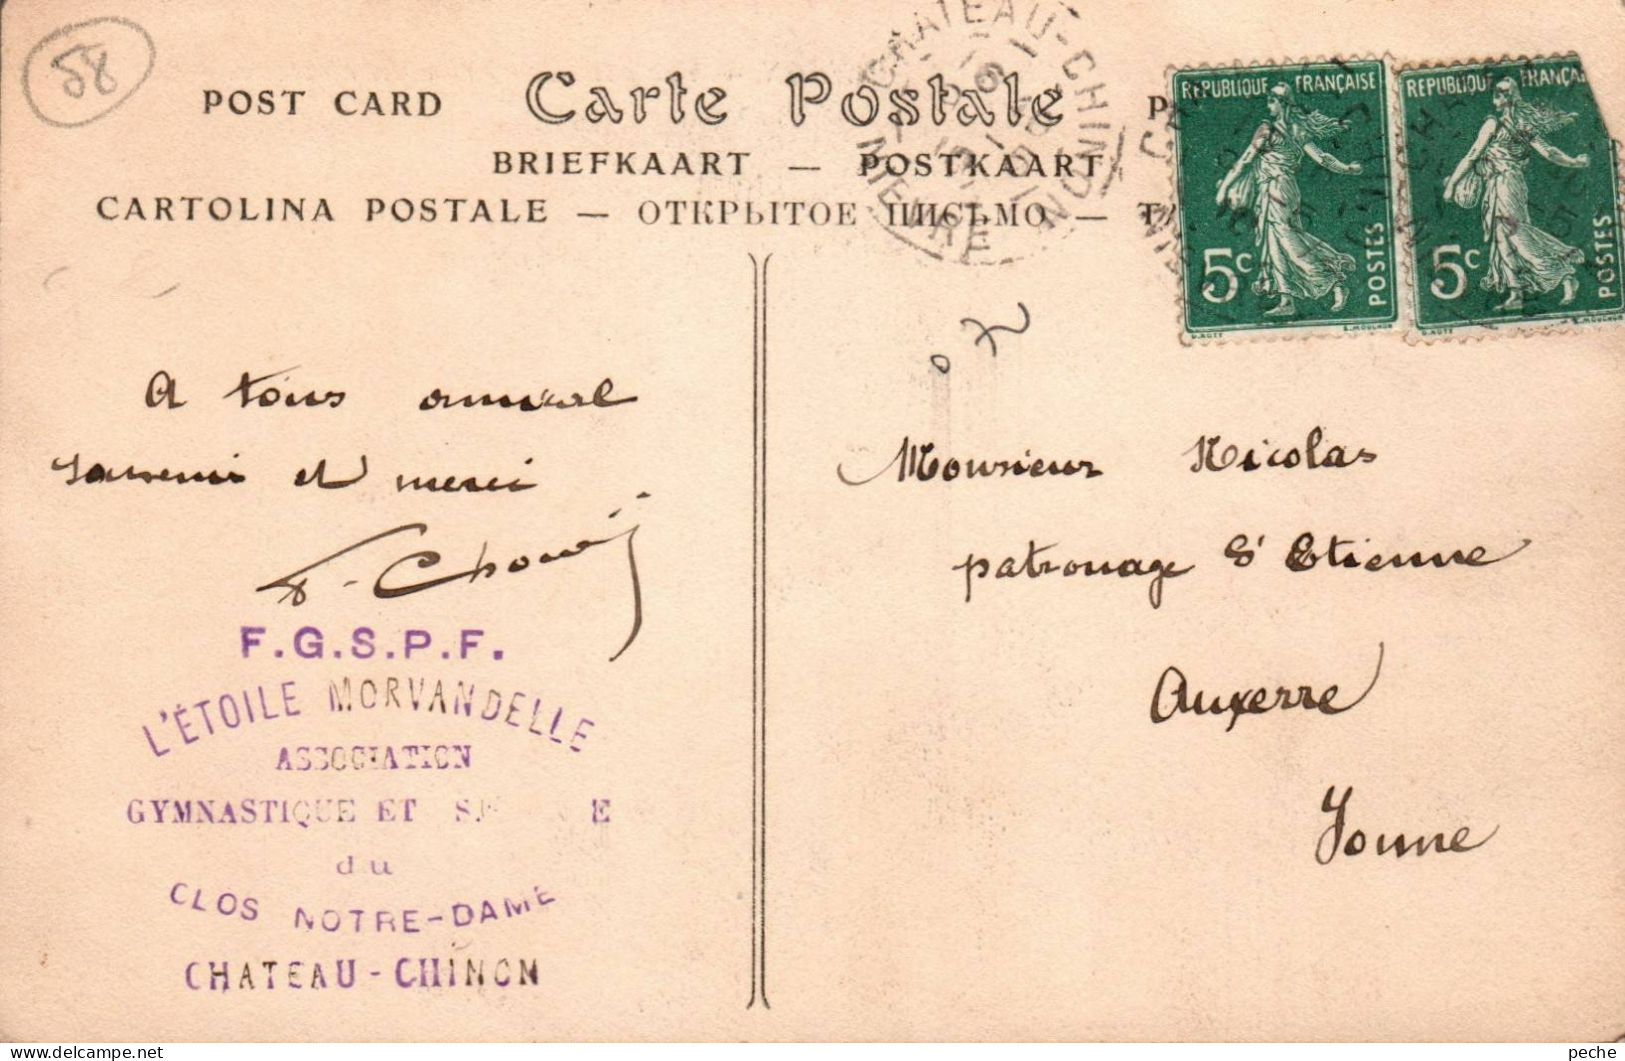 58
POST CARD Carte Postale
BRIEFKAART — POSTKAART
CARTOLINA POSTALE — ОТКРЫТОЕ ПИСЬМО —
CHATEAU-CHINON
NIEVRE
REPUBLIQUE FRANÇAISE
5c
POSTES
REPUBLIQUE FRANÇA
5c
POSTES
A tous amical
souvenir et merci
F.G.S.P.F.
L'ÉTOILE MORVANDELLE
ASSOCIATION
GYMNASTIQUE ET
du
CLOS NOTRE-DAME
CHATEAU-CHINON
Monsieur Nicolas
patronage St Etienne
Auxerre
Yonne
peche